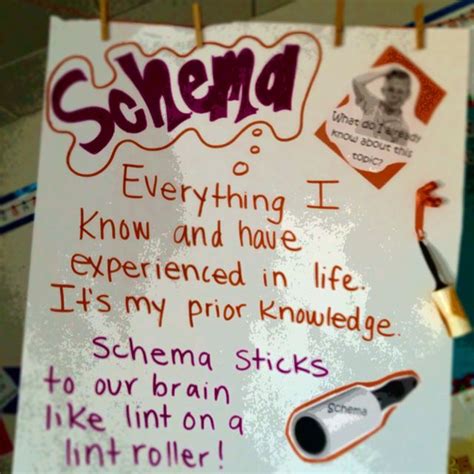 Schema
What do I already
know about this
topic?
Everything I
Know and have
experienced in life.
It's my prior Knowledge.
Schema Sticks
to our brain
like lint on a
lint roller!
Schema